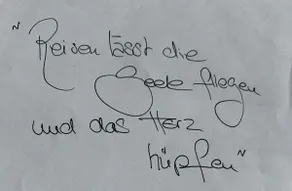 "Reisen lässt die
Seele fliegen
und das Herz
hüpfen"